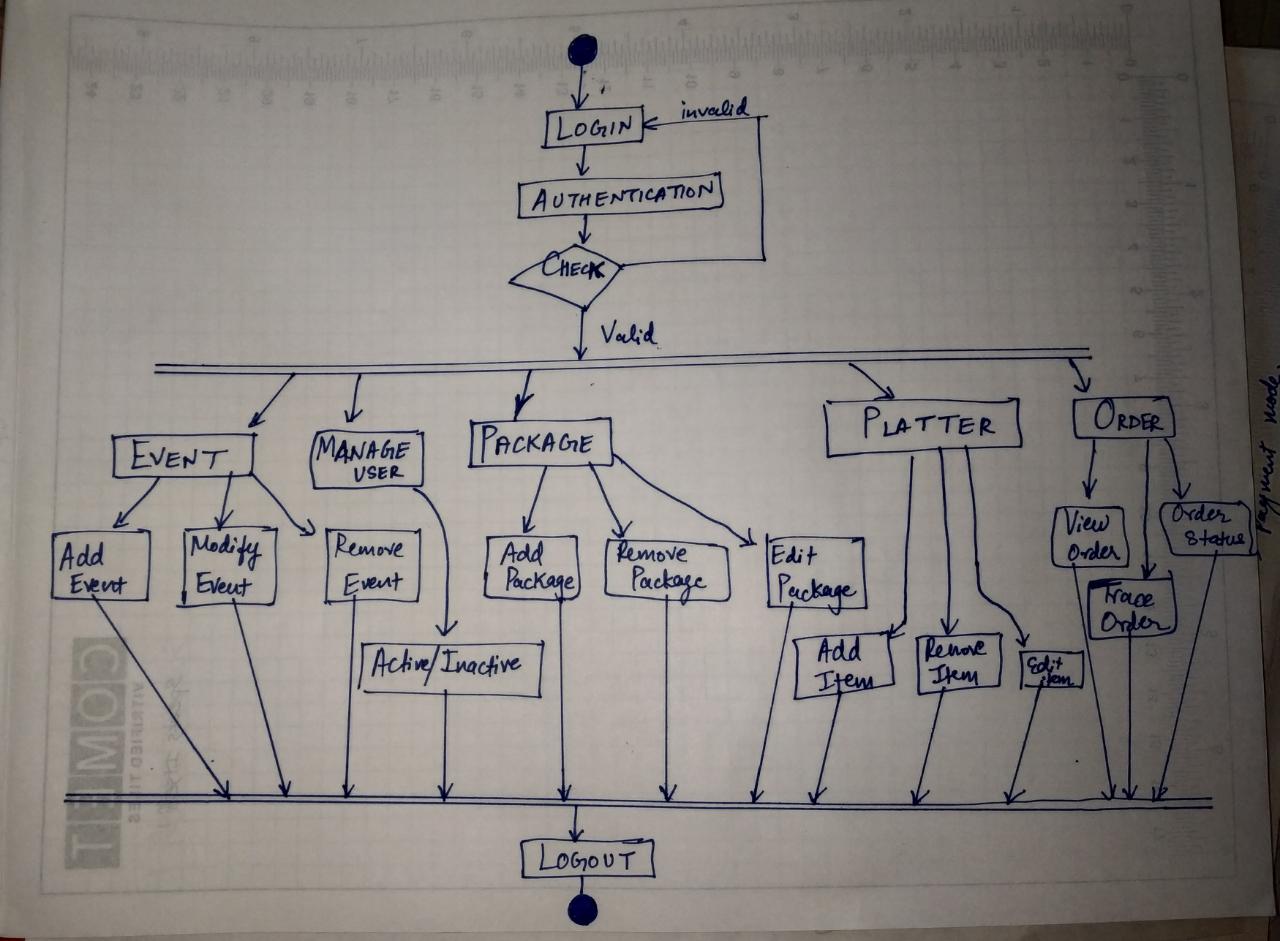 invalid
LOGIN
AUTHENTICATION
CHECK
Valid
EVENT
MANAGE
USER
PACKAGE
PLATTER
ORDER
Add
Event
Modify
Event
Remove
Event
Active/Inactive
Add
Package
Remove
Package
Edit
Package
Add
Item
Remove
Item
Edit
item
View
Order
Trace
Order
Order
Status
LOGOUT
payment mode
COMET
VITRIFIED TILES